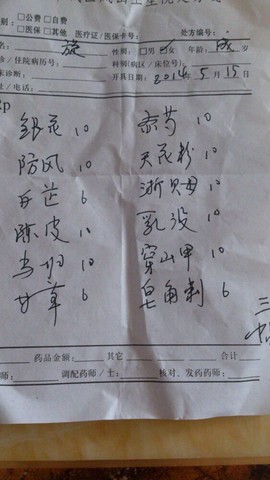 □公费 □自费
□医保 □其他 医疗证/医保卡号: 处方编号:
名: 旋 性别: □男 ☑女 年龄: 成 岁
诊/住院病历号: 科别(病区/床位号):
床诊断: 开具日期: 2014年 5月 15日
址/电话:
Rp
银花 10 赤芍 10
防风 10 天花粉 10
白芷 6 浙贝母 10
陈皮 10 乳没 10
当归 10 穿山甲 10
甘草 6 皂角刺 6
三
药品金额: 其它 合计
师: 调配药师/士: 核对、发药药师: